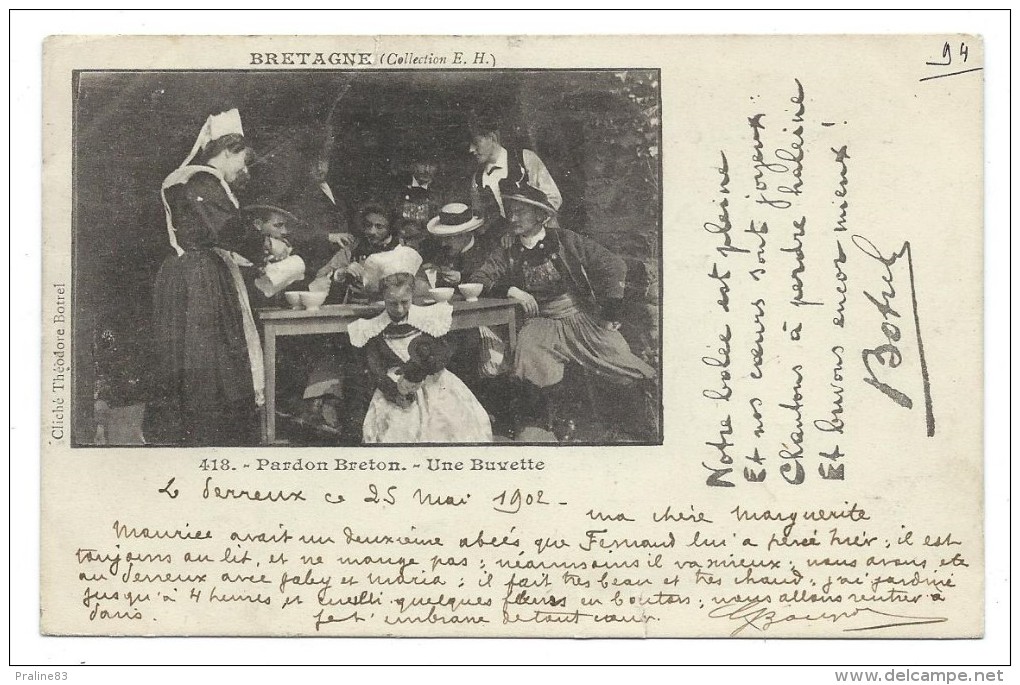 BRETAGNE (Collection E. H.)
94
Cliché Théodore Botrel
Notre bolée est pleine
Et nos cœurs sont joyeux :
Chantons à perdre haleine
Et buvons encor mieux !
Botrel
418. - Pardon Breton. - Une Buvette
Le Perreux ce 25 Mai 1902 -
ma chère Marguerite
Maurice avait un deuxième abcès que Fernand lui a percé hier ; il est
toujours au lit, et ne mange pas ; néanmoins il va mieux ; nous avons été
au Perreux avec Gaby et Maria ; il fait très beau et très chaud ; j'ai jardiné
jusqu'à 4 heures et cueilli quelques fleurs en boutons ; nous allons rentrer à
Paris. Je t'embrasse de tout cœur.
Praline83
www.delcampe.net